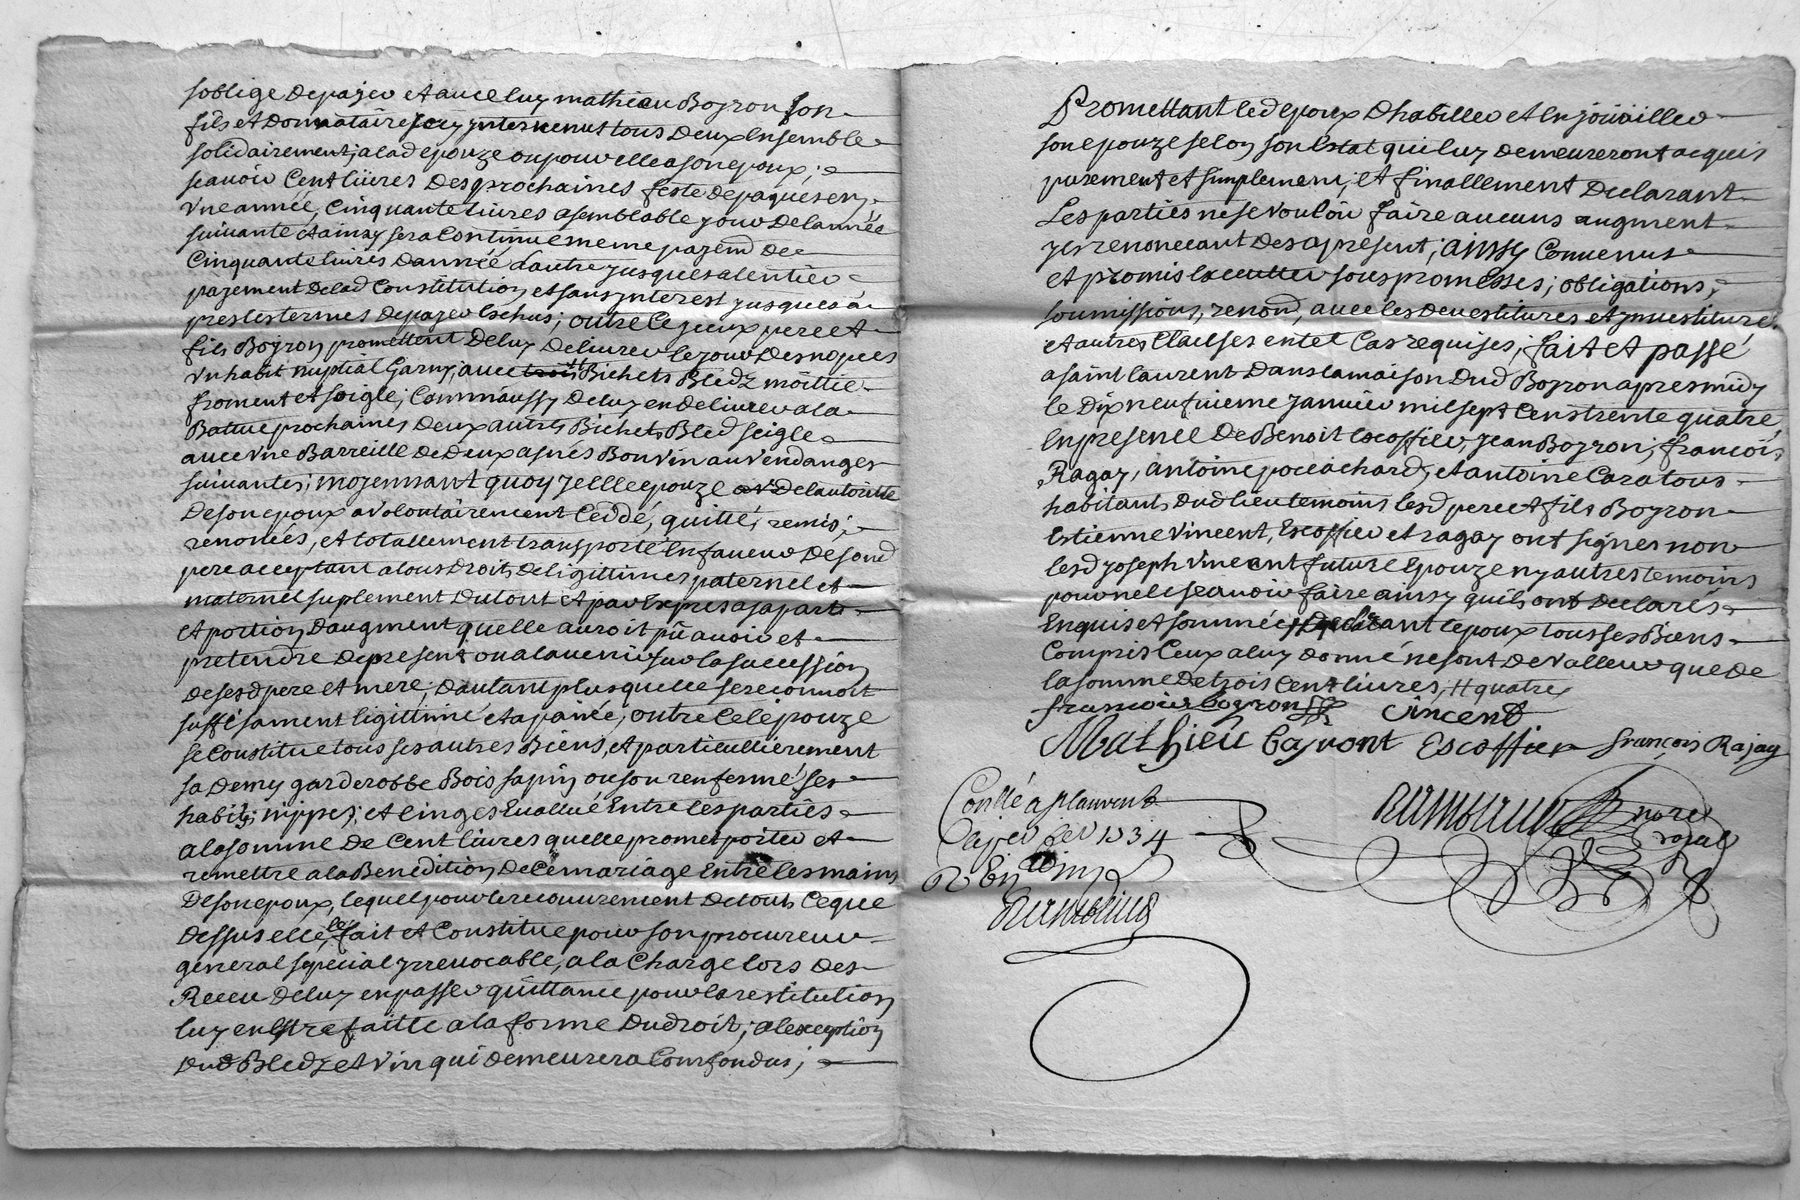 soblige depayer et avec luy mathieu Boyron son
fils et donnataire jcy yntervenut tous deux Ensemble
solidairement; alad epouze ou pour elle a son epoux;
scavoir Cent livres des prochaines feste de paques en
vne année, Cinquante livres a semblable jour de lannée
suivante et ainsy sera Continué meme payemd de
Cinquante livres dannée dautre jusques a lentier
pajement delad Constitution et sans ynterest jusques a
pres les termes de payer Eschus; outre ce yceux pere et
fils Boyron promettent de luy delivrer le jour des nopces
vn habit nuptial Garny, avec Bichets Bledz moittie
froment et soigle, Comm aussy de luy en delivrer a la
Batue prochaines deux autres Bichets Bled seigle
avec vne Barreille de deux asnés Bon vin au vendanges
suivantes; moyennant quoy yelle epouze de lautoritté
de son epoux a volontairement Ceddé, quitté, remis,
renoncés, et totallement transporté En faveur de sond
pere acceptant a tous droits de ligittimes paternel et
maternel suplement du tout et par Expres a sa part
et portion daugment quelle auroit pû avoir et
pretendre de present ou a lavenir sur la succession
de sesd pere et mere, dautant plus quelle se reconnoit
suffisament ligittimé et apanée, outre Cele épouze
se Constitue tous ses autres Biens, et particullierement
sa demy garderobbe Bois sapin ou son renfermé ses
habits; nippes; et linges Evallué Entre les parties
a la somme de Cent livres quelle promet porter et
remettre a la Benedition de Ce mariage Entre les mains
de son epoux, lequel pour le recouvrement de tout Ce que
dessus elle le fait et Constitue pour son procureur
general special yrrevocable, a la Charge lors des
Receu de luy en passer quittance pour la restitution
luy en Estre faitte a la forme du droit; a lexception
dud Bledz et vin qui demeurera Confondus;
Promettant led epoux dhabiller et En joüailler
son epouze selon son Estat qui luy demeureront acquis
purement et simplement; et finallement declarant
Les parties ne se vouloir faire aucuns augment
y renoncant des apresent; ainsy Convenus
et promis Executter sous promesses; obligations,
soumissions, renond, avec les devestitures et ynvestitures
et autres Clauses en tel Cas requises; fait et passé
a saint laurent dans la maison dud Boyron apres midy
le dix neufvieme janvier mil sept Cens trente quatre,
En presence de Benoit Escoffier, Jean Boyron; francois
Ragay, antoine poceachard, et antoine Cara tous
habitants dud lieu temoins lesd pere et fils Boyron
Estienne Vincent, Escoffier et ragay ont signes non
lesd joseph Vincent future Epouze ny autres temoins
pour ne le scavoir faire ainsy quils ont declarés
Enquis et sommés, declarant lepoux tous ses Biens
Compris Ceux a luy donné ne sont de valleur que de
la somme de trois Cent livres, H quatre
francois boyron Vincent
Mathieu bayront Escoffier françois Rajay
Conllé a st laurent
Le jer fer 1734
nore
royal